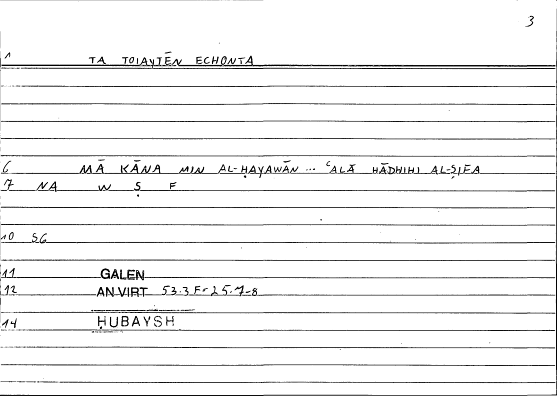 3
1 TA TOIAYTĒN ECHONTA
6 MĀ KĀNA MIN AL-ḤAYAWĀN ... ʿALĀ HĀDHIHI AL-ṢIFA
7 NA W Ṣ F
10 SG
11 GALEN
12 AN VIRT 53.3F-25.7-8
14 ḤUBAYSH